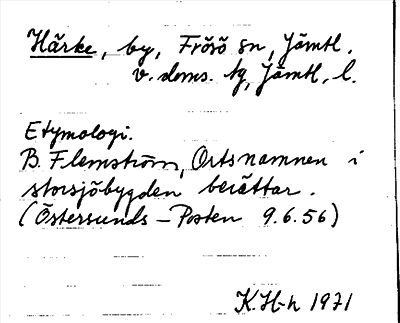 Härke, by, Frösö sn, Jämtl.
v. doms. tg, Jämtl. l.
Etymologi.
B. Flemström, Ortsnamnen i
storsjöbygden berättar.
(Östersunds-Posten 9.6.56)
K.H-n 1971